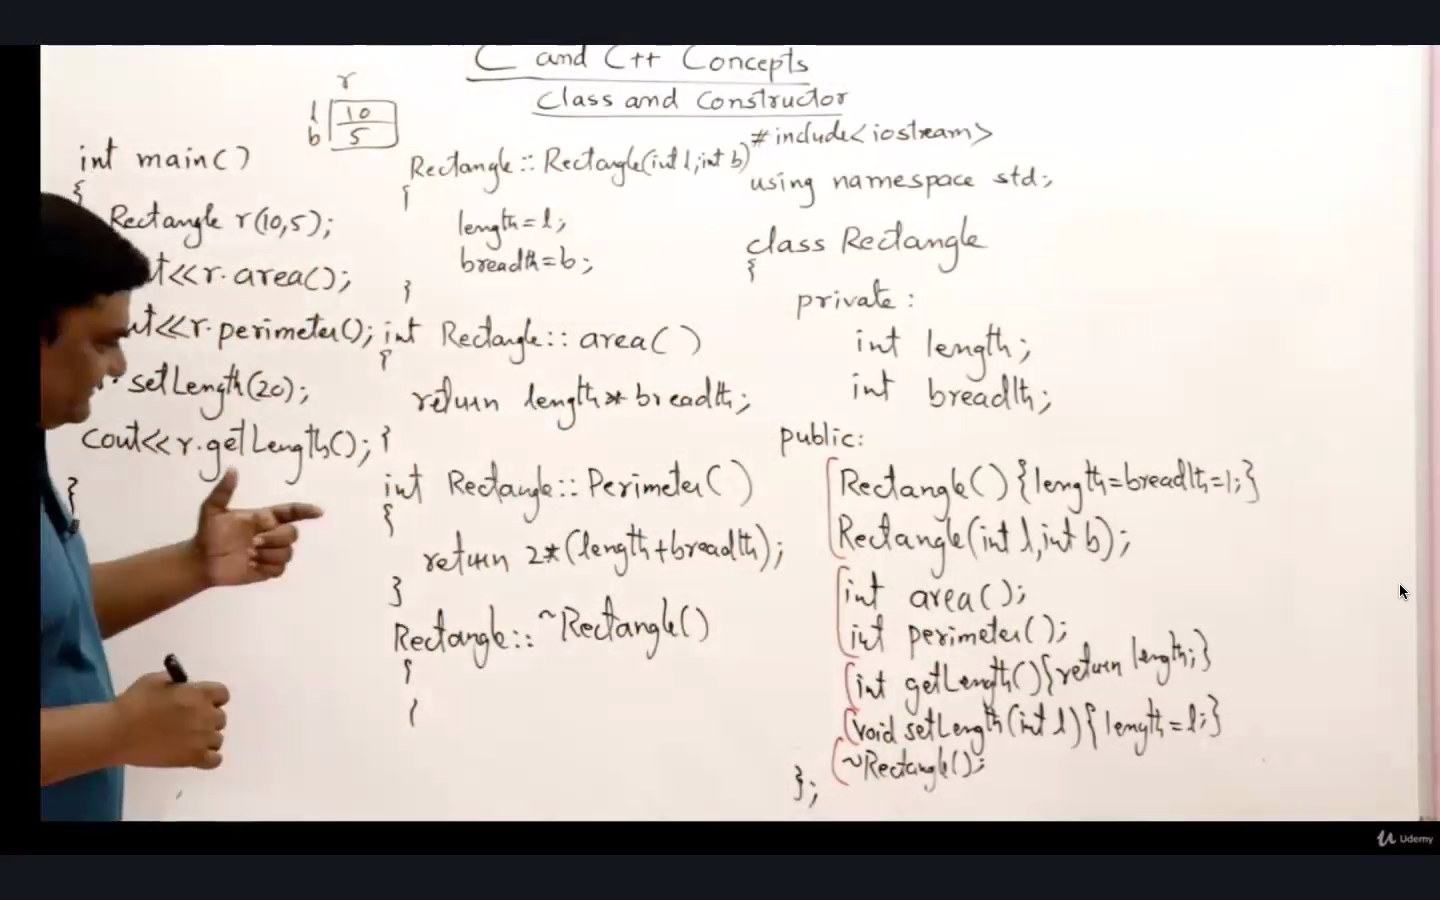 C and C++ Concepts
Class and Constructor
r
l 10
b 5
int main()
{
Rectangle r(10,5);
<<r.area();
<<r.perimeter();
setLength(20);
cout<<r.getLength();
}
Rectangle::Rectangle(int l,int b)
{
length=l;
breadth=b;
}
int Rectangle::area()
{
return length*breadth;
}
int Rectangle::Perimeter()
{
return 2*(length+breadth);
}
Rectangle::~Rectangle()
{
{
#include<iostream>
using namespace std;
class Rectangle
{
private:
int length;
int breadth;
public:
Rectangle(){length=breadth=1;}
Rectangle(int l,int b);
int area();
int perimeter();
int getLength(){return length;}
void setLength(int l){length=l;}
~Rectangle();
};
Udemy